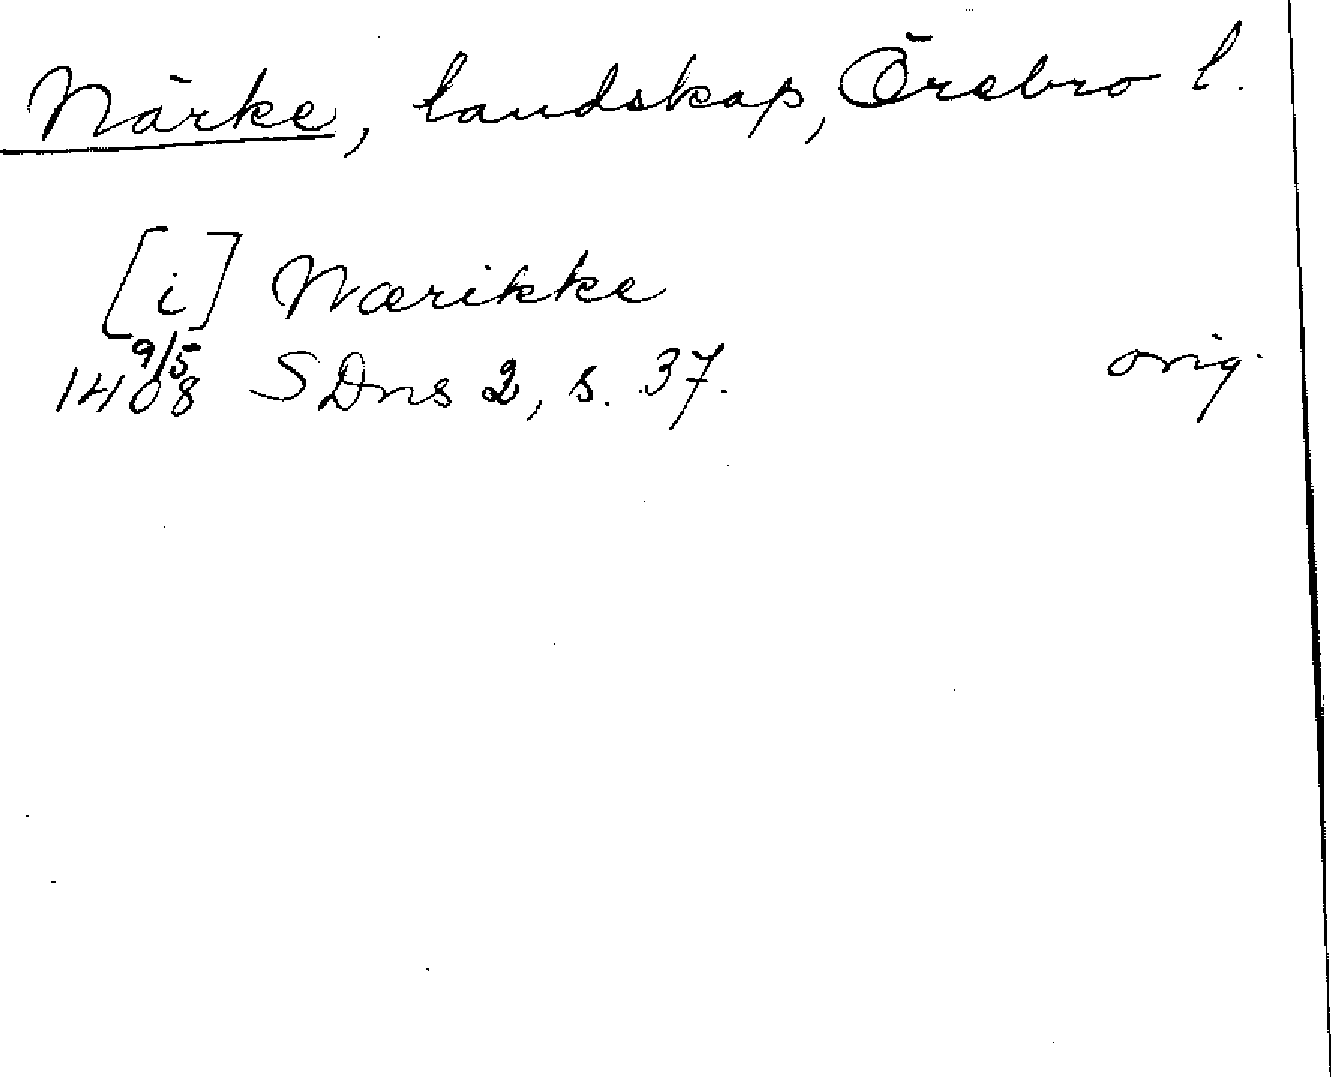 Närke, landskap, Örebro l.
[i] Nærikke
1408 9/5 SDns 2, s. 37. orig.